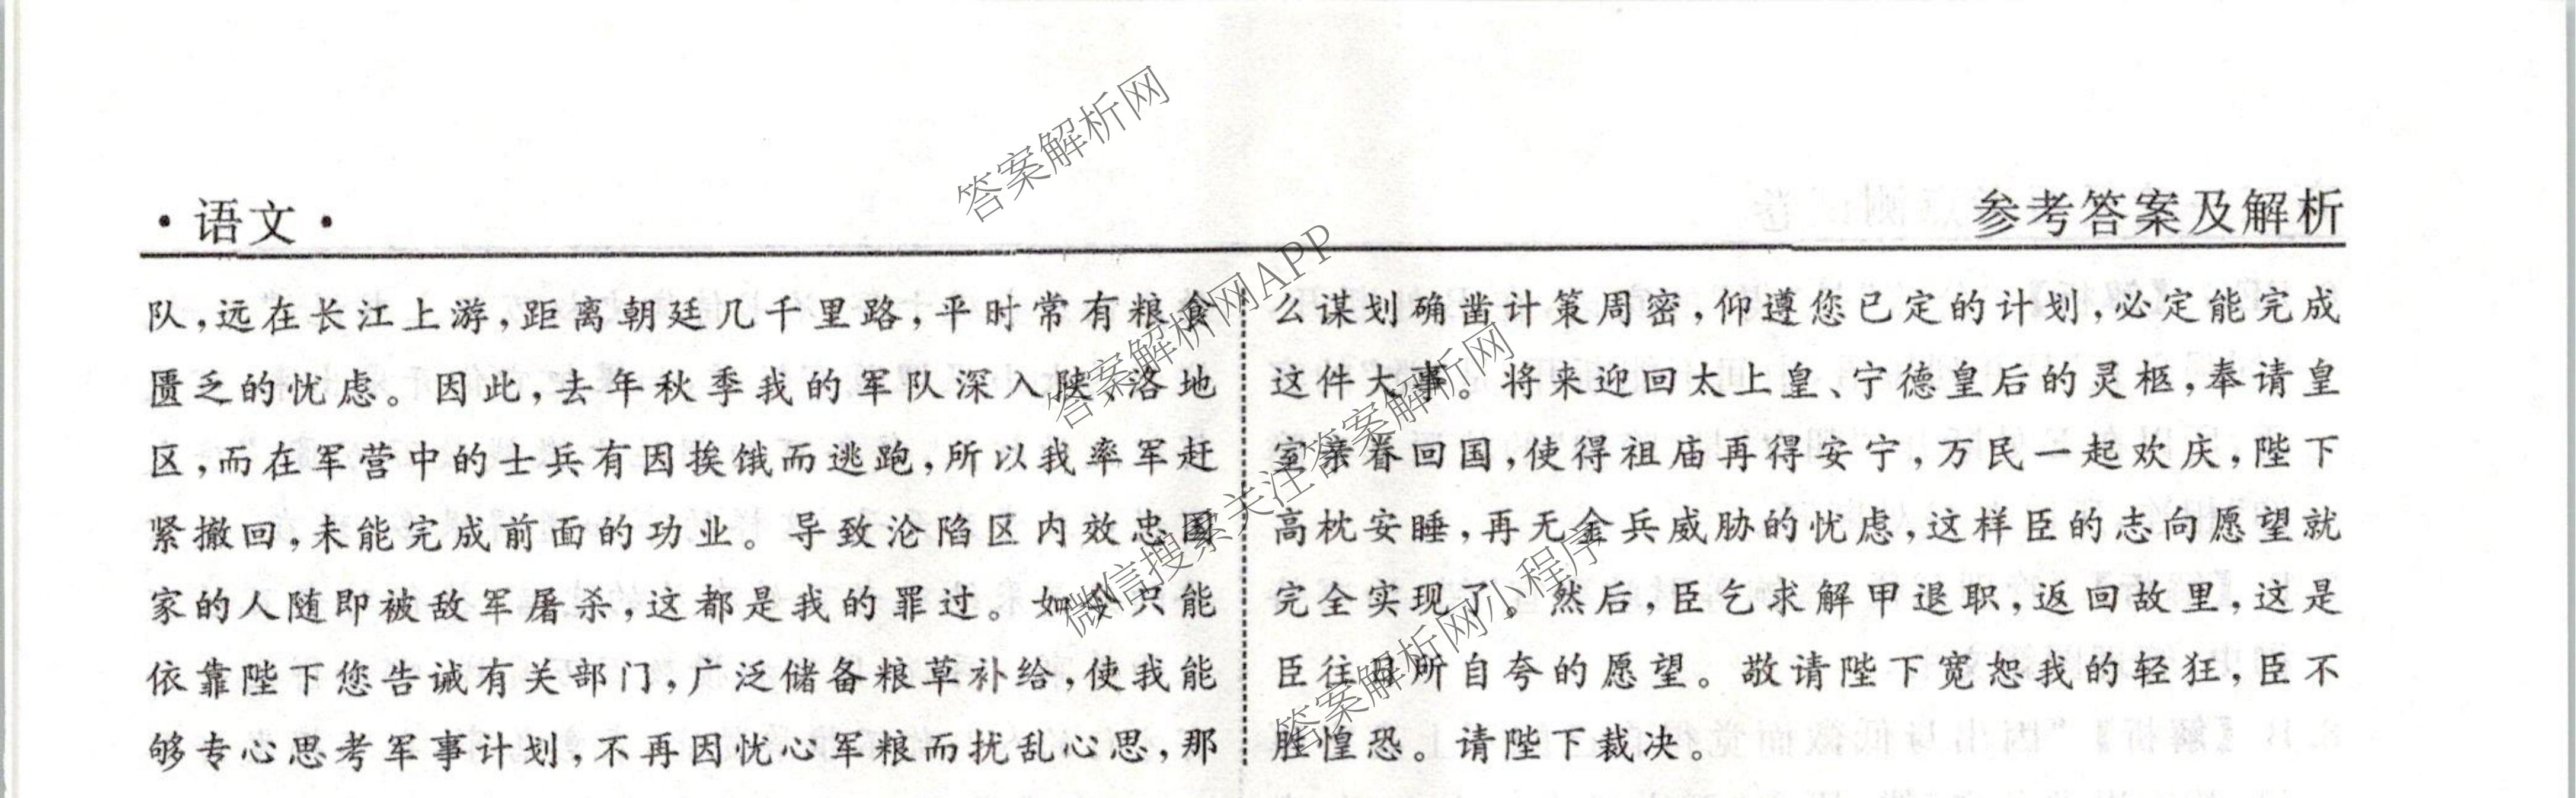 ·语文·
参考答案及解析
队,远在长江上游,距离朝廷几千里路,平时常有粮食
匮乏的忧虑。因此,去年秋季我的军队深入陕、洛地
区,而在军营中的士兵有因挨饿而逃跑,所以我率军赶
紧撤回,未能完成前面的功业。导致沦陷区内效忠国
家的人随即被敌军屠杀,这都是我的罪过。如今只能
依靠陛下您告诫有关部门,广泛储备粮草补给,使我能
够专心思考军事计划,不再因忧心军粮而扰乱心思,那
么谋划确凿计策周密,仰遵您已定的计划,必定能完成
这件大事。将来迎回太上皇、宁德皇后的灵柩,奉请皇
室亲眷回国,使得祖庙再得安宁,万民一起欢庆,陛下
高枕安睡,再无金兵威胁的忧虑,这样臣的志向愿望就
完全实现了。然后,臣乞求解甲退职,返回故里,这是
臣往日所自夸的愿望。敬请陛下宽恕我的轻狂,臣不
胜惶恐。请陛下裁决。
答案解析网
答案解析网APP
微信搜索关注答案解析网
答案解析网小程序